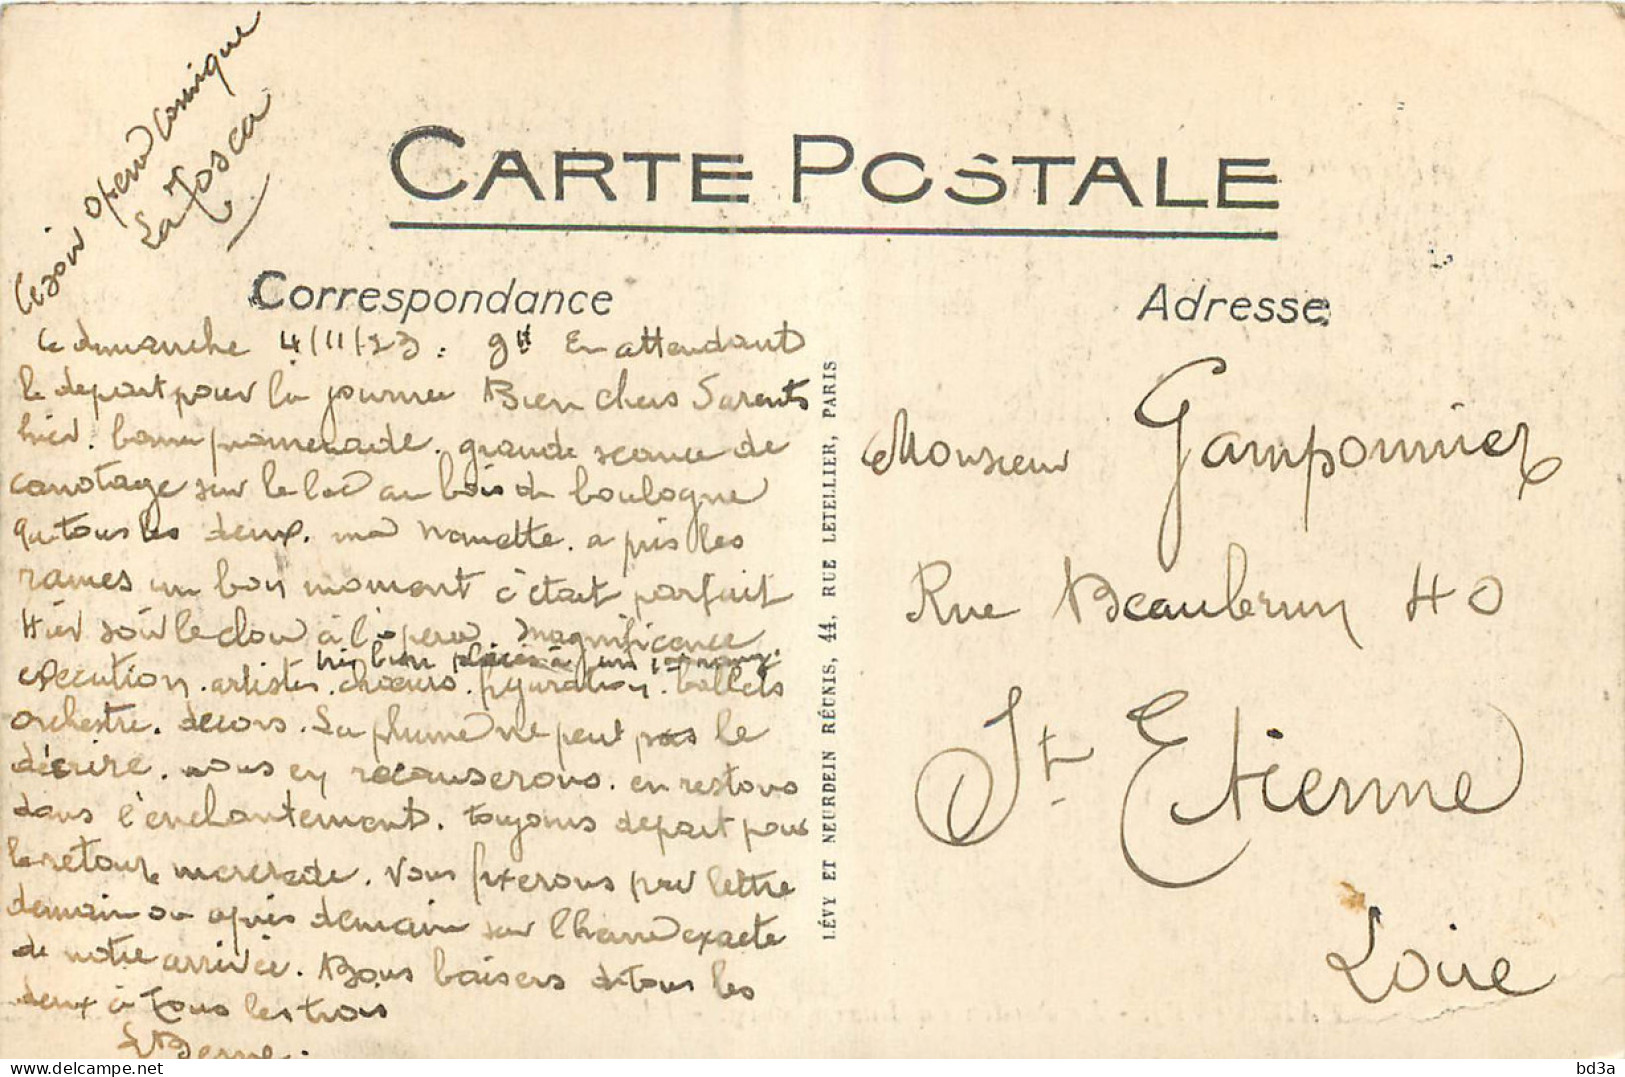 Ce soir opera comique
La Tosca
CARTE POSTALE
Correspondance
Adresse
Ce dimanche 4/11/23: 9H En attendant
le depart pour la journee Bien chers Parents
hier. bonne promenade. grande seance de
canotage sur le lac au bois de boulogne
tous les deux. ma Nanette. a pris les
rames un bon moment c'etait parfait
Hier soir le clou à l'opera. magnificence
bien placés à 1er rang.
execution. artistes. choeurs. figuration. ballets
orchestre. decors. La plume ne peut pas le
décrire. nous en recauserons. en restons
dans l'enchantement. toujours depart pour
le retour mercredi. Vous fixerons par lettre
demain ou après demain sur l'heure exacte
de notre arrivée. Bons baisers de tous les
deux à tous les trois
LÉVY ET NEURDEIN RÉUNIS, 44, RUE LETELLIER, PARIS
Monsieur Gamponnier
Rue Beaubrun 40
St Etienne
Loire
www.delcampe.net
bd3a